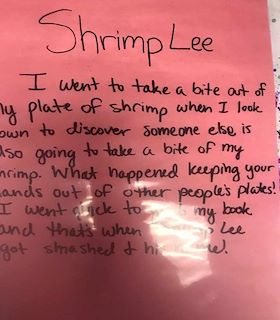 Shrimp Lee
I went to take a bite out of
my plate of shrimp when I look
own to discover someone else is
lso going to take a bite of my
hrimp. What happened keeping your
ands out of other people's plates!
I went back to my book
and that's when Lee
got smashed &